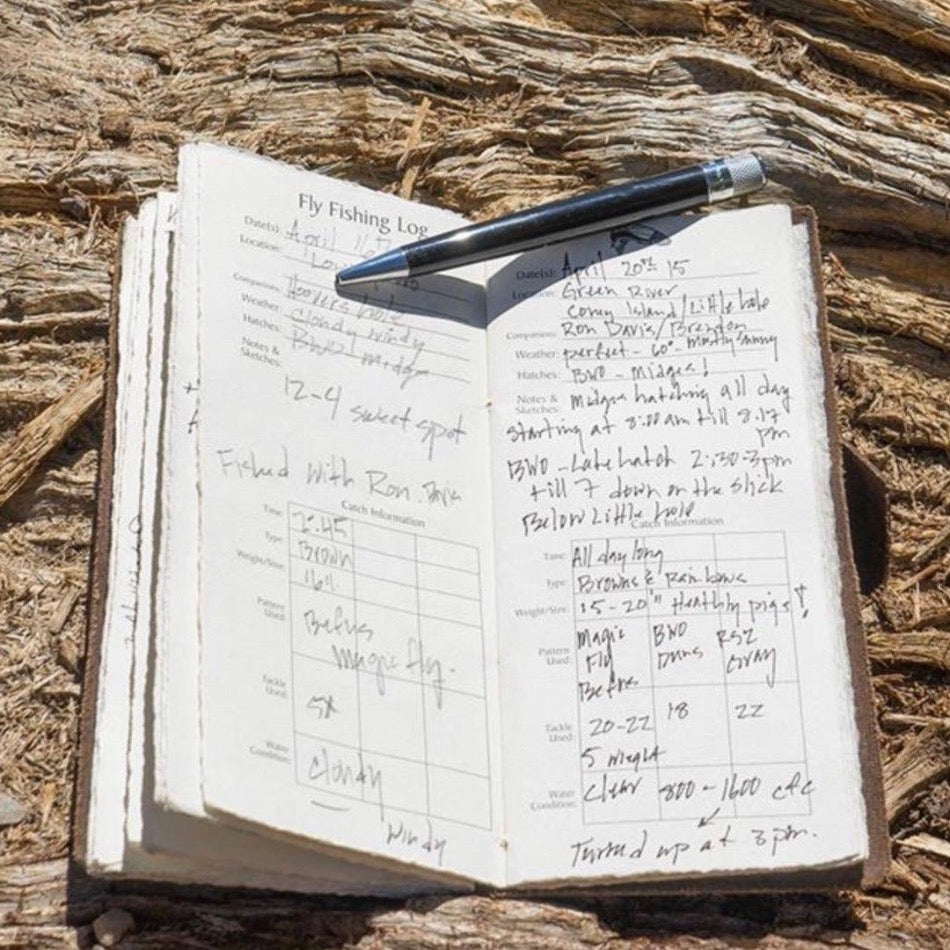 Fly Fishing Log
Date(s): April
Location:
Companions: Hoovers hole
Weather: cloudy windy
Hatches: BWO midge
Notes &
Sketches:
12-4 sweet spot
Fished with Ron Davis
Catch Information
Time: 2:45
Type: Brown
Weight/Size: 16"
Pattern
Used: Befus
Magic fly.
Tackle
Used: 5x
Water
Condition: cloudy
Windy
Date(s): April 20th 15
Location: Green River
Coney Island/Little hole
Companions: Ron Davis/Brendon
Weather: perfect - 60° - mostly sunny
Hatches: BWO - Midges!
Notes &
Sketches: Midges hatching all day
starting at 8:00 am till 8:17
pm
BWO - Late hatch 2:30-3pm
till 7 down on the slick
Below Little hole
Catch Information
Time: All day long
Type: Browns & Rainbows
Weight/Size: 15-20"
Healthy pigs!
Pattern
Used: Magic Fly Befus BWO Duns RS2 Gray
Tackle
Used: 20-22 18 22
5 weight
Water
Condition: clear 800 - 1600 cfc
Turned up at 3 pm.